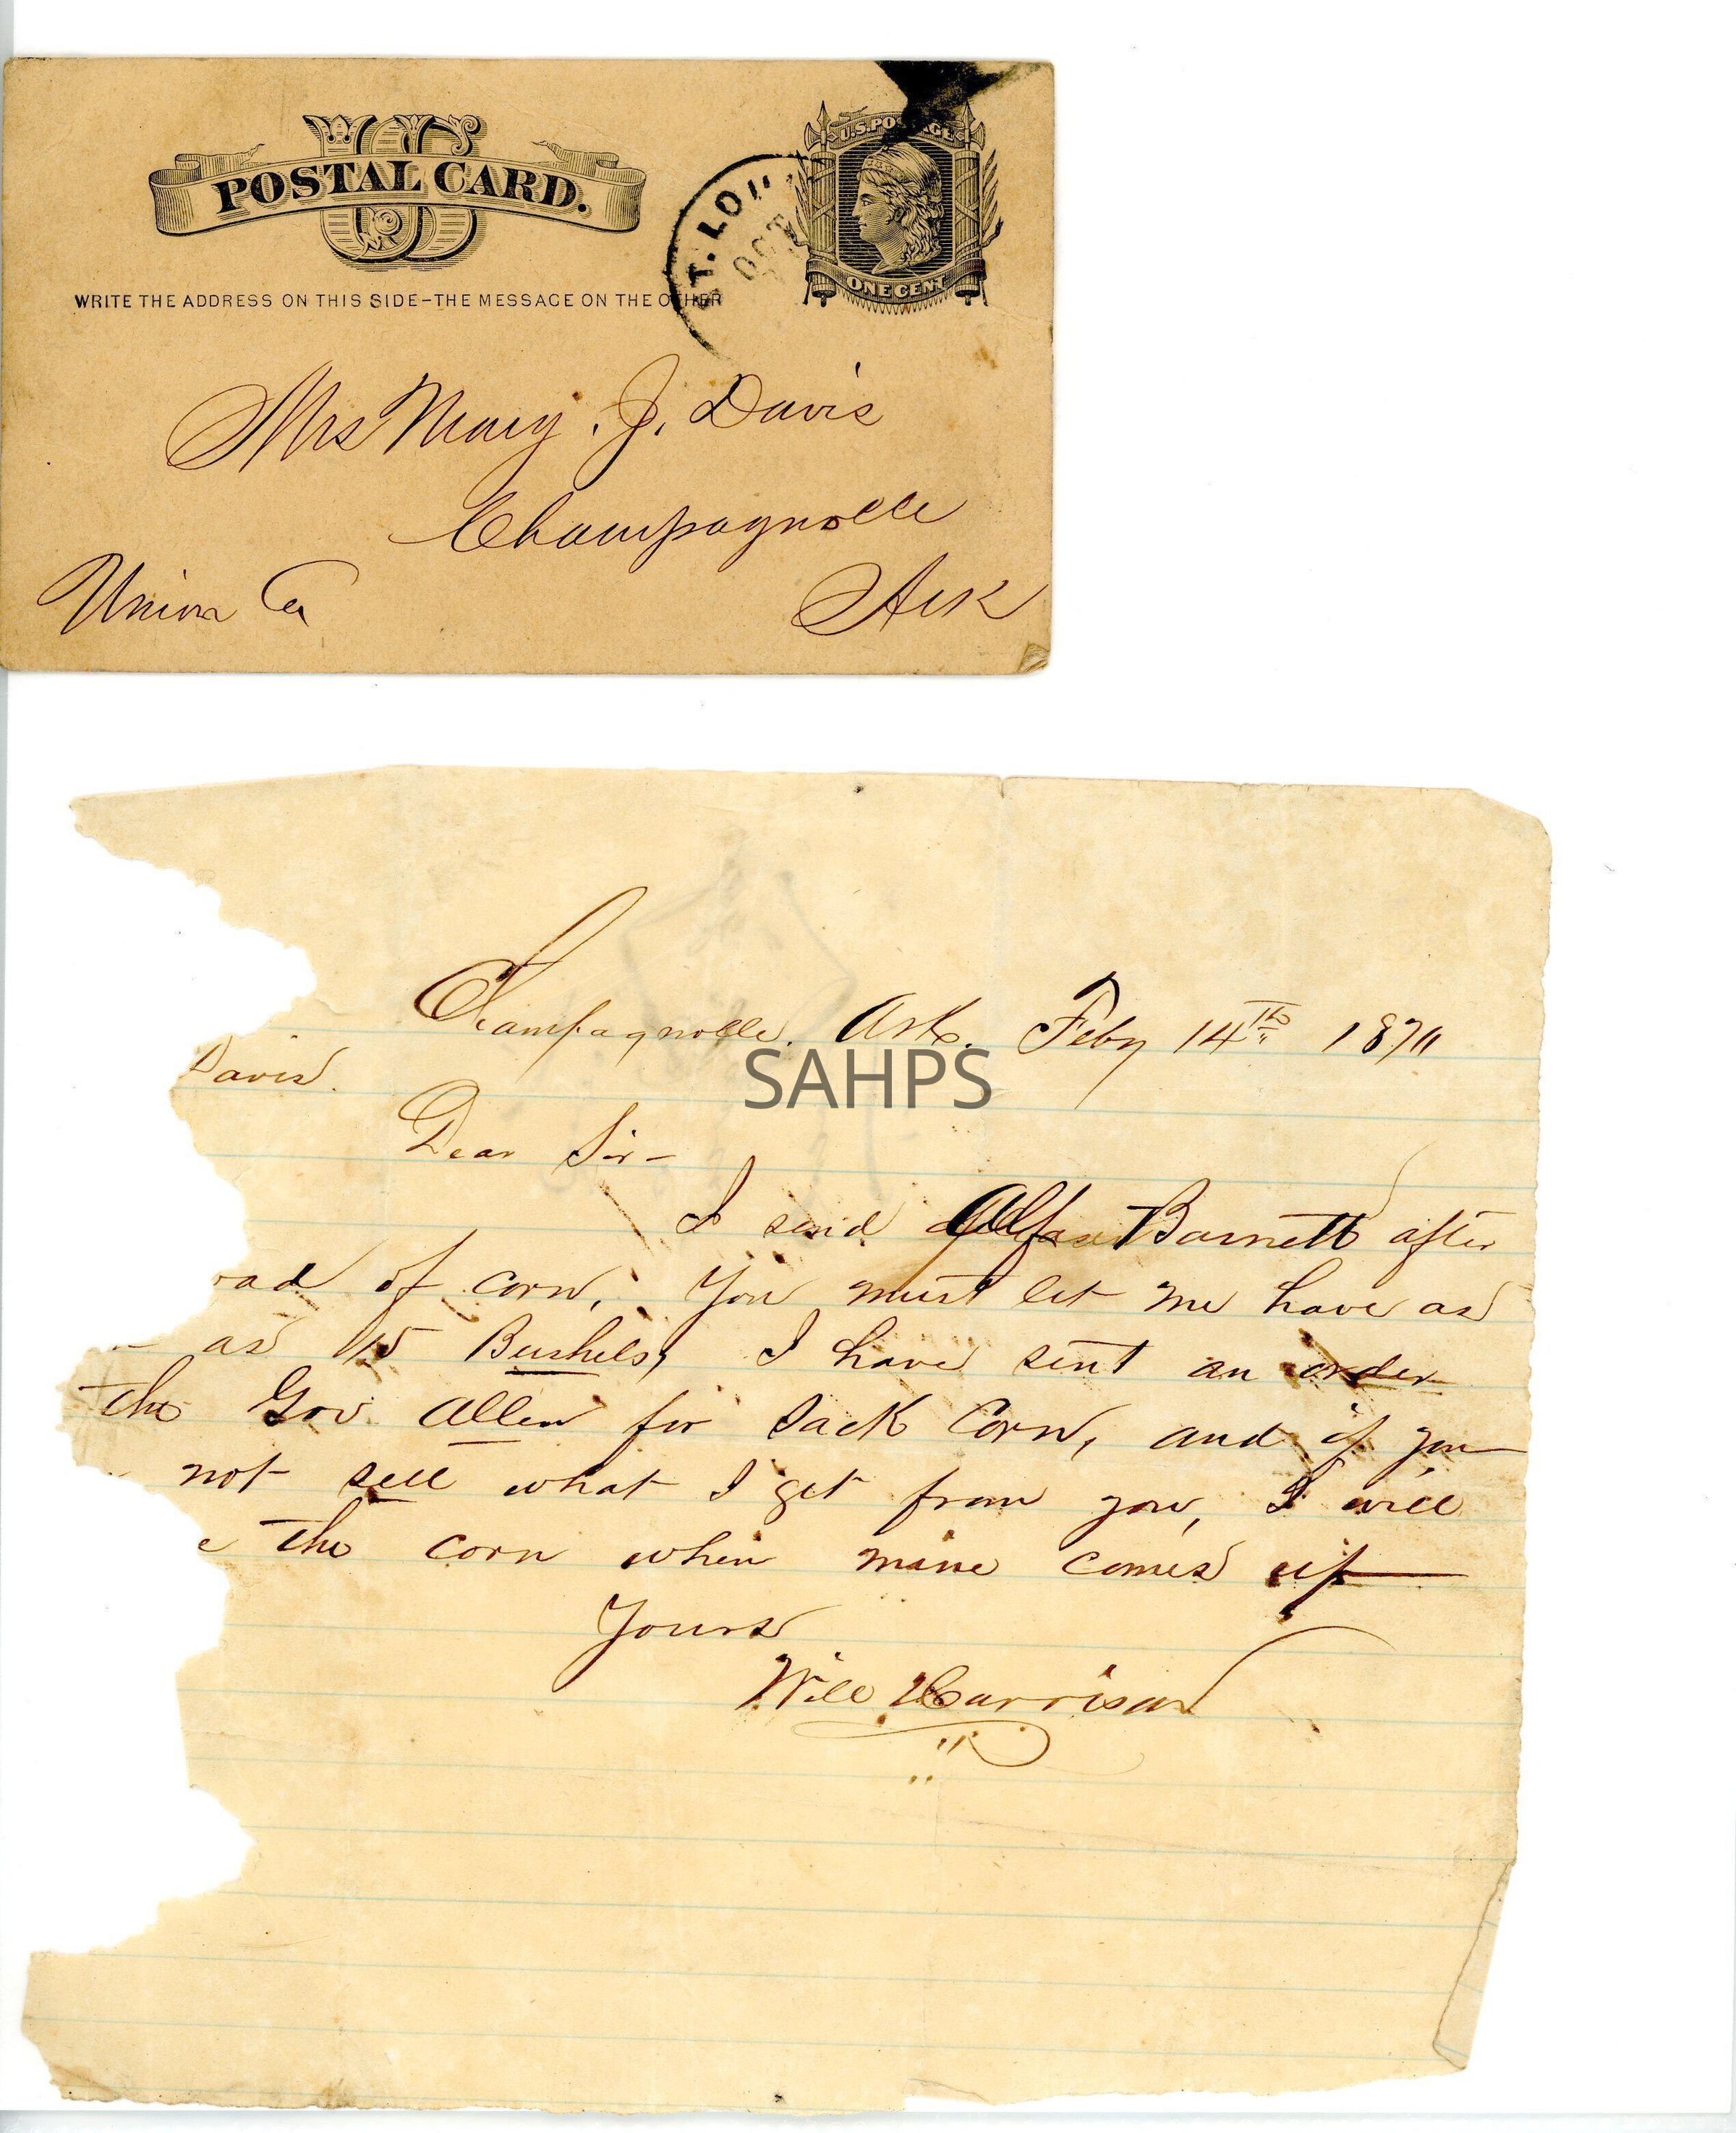 US
POSTAL CARD.
WRITE THE ADDRESS ON THIS SIDE-THE MESSAGE ON THE OTHER
U.S. POSTAGE
ONE CENT
ST. LOUI
OCT
Mrs Mary J. Davis
Champagnolle
Union Co Ark
Champagnolle. Ark. Feby 14th 187
Davis.
SAHPS
Dear Sir-
I send Barnett after
oad of corn, You must let me have as
as 15 Bushels, I have sent an order
the Gov. Allen for Sack Corn, and if you
not sell what I get from you, I will
e the corn when mine comes up
Yours
Will Harrison